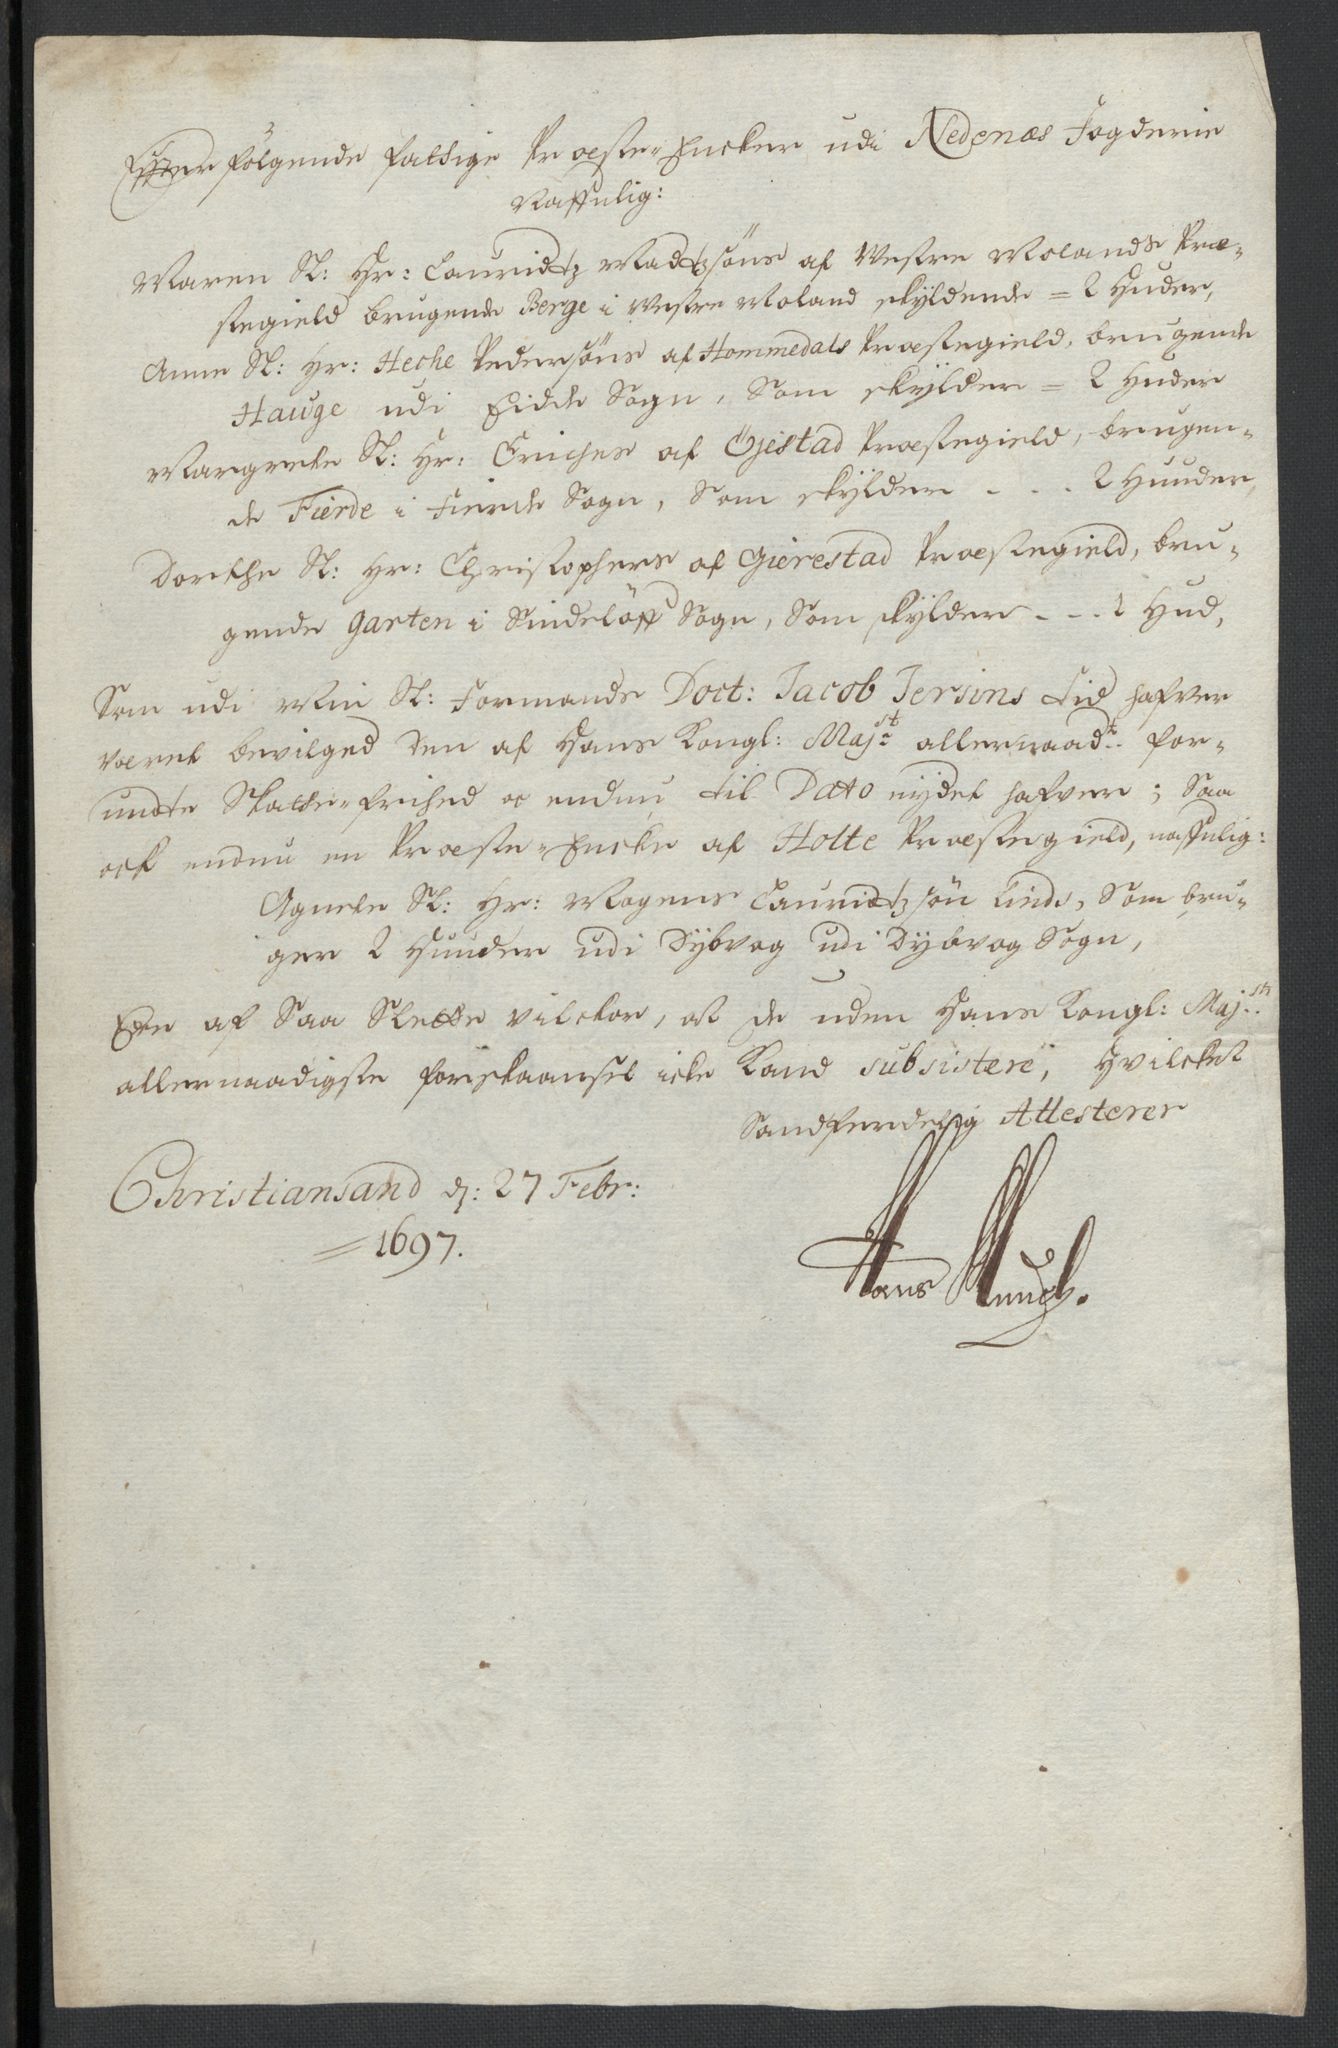 Effterfölgende fattige Præste-Encker udi Nedenæs Fogderie
Naffnlig:
Maren Sl: Hr: Lauridtz Madtzsöns af Westre Molands Præ-
stegield brugende Berge i Westre Moland skyldende = 2 Huder,
Anne Sl: Hr: Heche Pedersöns af Hommedals Præstegield, brugende
Hauge udi Eidde Sogn, Som skylder = 2 Huder
Margrete Sl: Hr: Eriches af Öjestad Præstegield, brugen-
de Fierde i Fierde Sogn, Som skylder - - - 2 Huuder,
Dorthe Sl: Hr: Christophers af Gierestad Præstegield, bru-
gende Garten i Sindelöff Sogn, Som skylder - - - 1 Hud,
Som udi Min Sl: Formands Doct: Jacob Jersins tid hafver
været bevilged den af Hans Kongl: Maj:st allernaad:t for-
undte Skatte-frihed oc endnu til Dato nydet hafver; Saa
ock endnu en Præste-Encke af Holte Præstegield, naffnlig:
Agnete Sl: Hr: Mogens Lauridtzsön Linds, Som bru-
ger 2 Huuder udi Dybvog udi Dybvog Sogn,
Ere af Saa Slette vilckor, at de uden Hans Kongl: Maj:sts
allernaadigste forskaansel icke Kand subsistere, Hvilcket
Sandferdelig Attesterer
Christiansand d: 27 Febr:
= 1697.
Hans Munch.